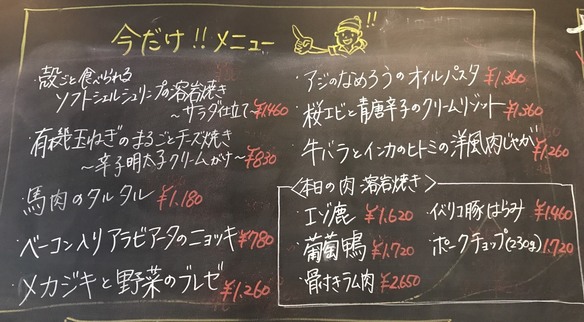 今だけ!!メニュー
!!
・殻ごと食べられる
ソフトシェルシュリンプの溶岩焼き
〜サラダ仕立て〜¥1,460
・有機玉ねぎのまるごとチーズ焼き
〜辛子明太子クリームがけ〜¥830
・馬肉のタルタル ¥1,180
・ベーコン入りアラビアータのニョッキ ¥780
・メカジキと野菜のブレゼ ¥1,260
・アジのなめろうのオイルパスタ ¥1,360
・桜エビと青唐辛子のクリームリゾット ¥1,360
・牛バラとインカのヒトミの洋風肉じゃが ¥1,260
<本日の肉 溶岩焼き>
・エゾ鹿 ¥1,620
・葡萄鴨 ¥1,720
・骨付きラム肉 ¥2,650
・イベリコ豚はらみ ¥1,460
・ポークチョップ(230g) 1,720